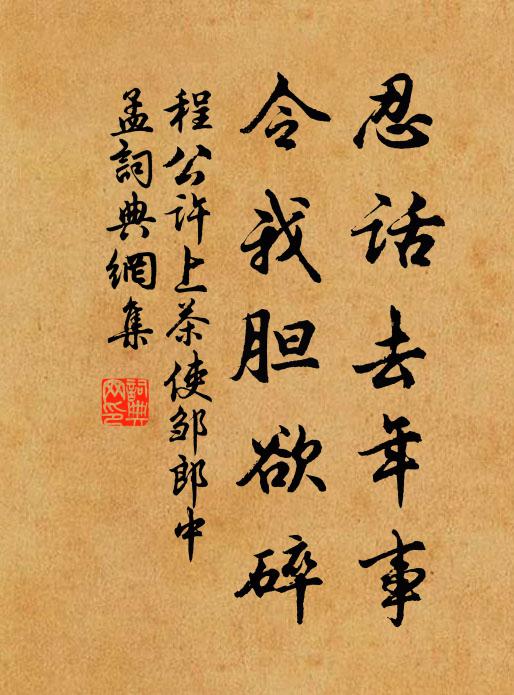 忍话去年事
令我胆欲碎
程公许上茶使邹郎中
孟詞典網集
詞典网印